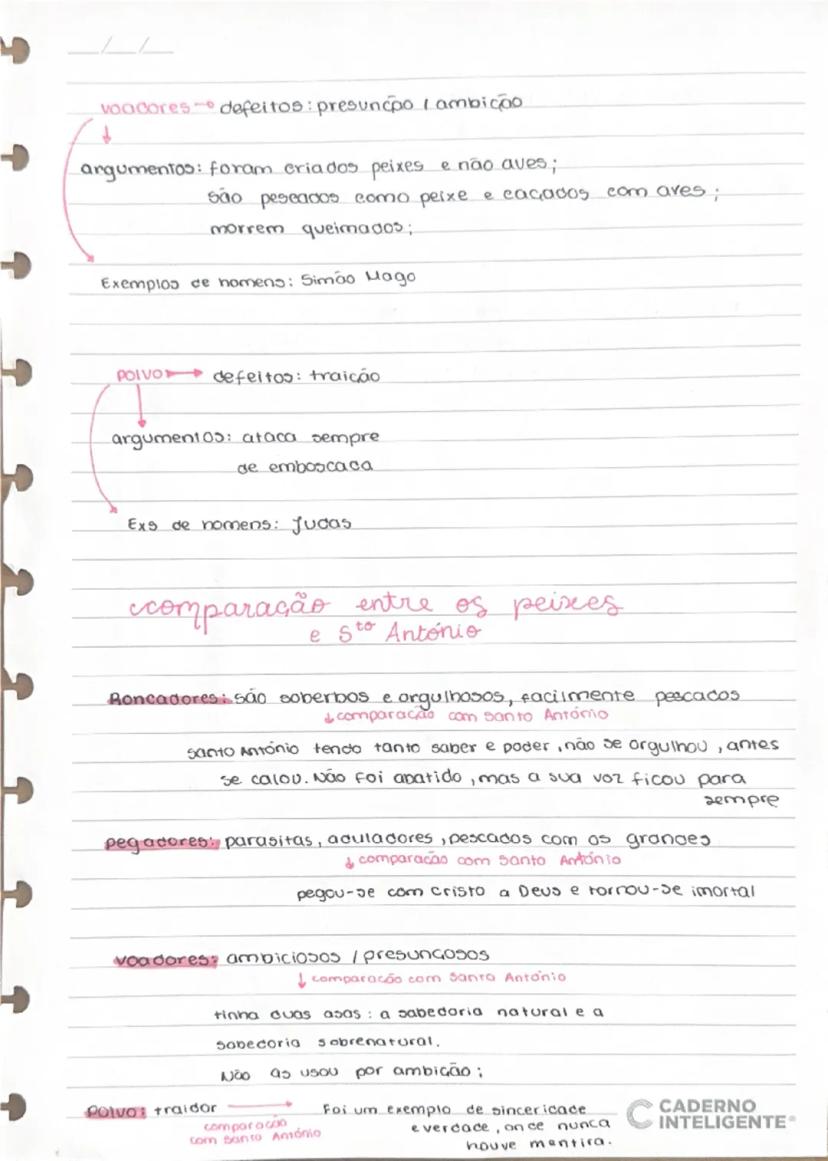 __/__/__
voadores → defeitos: presunção / ambição
argumentos: foram criados peixes e não aves;
são pescados como peixe e caçados com aves;
morrem queimados;
Exemplos de homens: Simão Mago
POLVO → defeitos: traição
argumentos: ataca sempre
de emboscada
Exs de homens: Judas
comparação entre os peixes
e Sto António
Roncadores: são soberbos e orgulhosos, facilmente pescados
↓ comparação com Santo António
Santo António tendo tanto saber e poder, não se orgulhou, antes
se calou. Não foi abatido, mas a sua voz ficou para
sempre
pegadores: parasitas, aduladores, pescados com os grandes
↓ comparação com Santo António
pegou-se com Cristo a Deus e tornou-se imortal
voadores: ambiciosos / presunçosos
↓ comparação com Santo António
tinha duas asas: a sabedoria natural e a
sabedoria sobrenatural.
Não as usou por ambição;
Polvo: traidor → Foi um exemplo de sinceridade
comparação
com Santo António
e verdade, onde nunca
houve mentira.
CADERNO
INTELIGENTE®